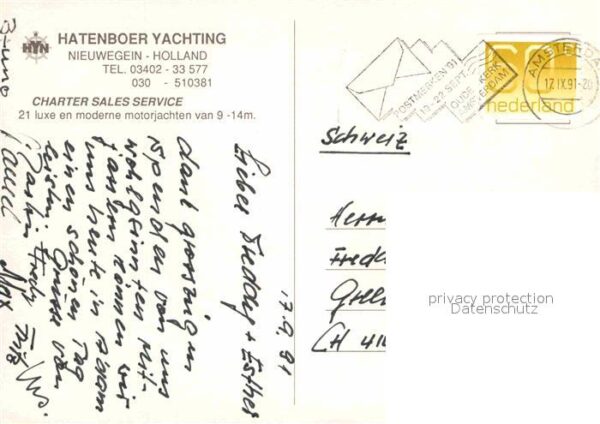 HYN
HATENBOER YACHTING
NIEUWEGEIN - HOLLAND
TEL. 03402 - 33 577
030 - 510381
CHARTER SALES SERVICE
21 luxe en moderne motorjachten van 9 -14m.
17.9.91
Lieber Freddy + Esther
dank grosszügigen
Spenden von uns
wohlgesinnten Mit-
fassen können wir
uns heute in
einen schönen Tag
leisten. Grüsse von
Bruno
Max
Fritz
POSTMERKEN '91
13-22 SEPT.
OUDE KERK
AMSTERDAM
AMSTERDA
17.IX.91-20
60
nederland
Schweiz
Herrn
Fred
CH 41
privacy protection
Datenschutz